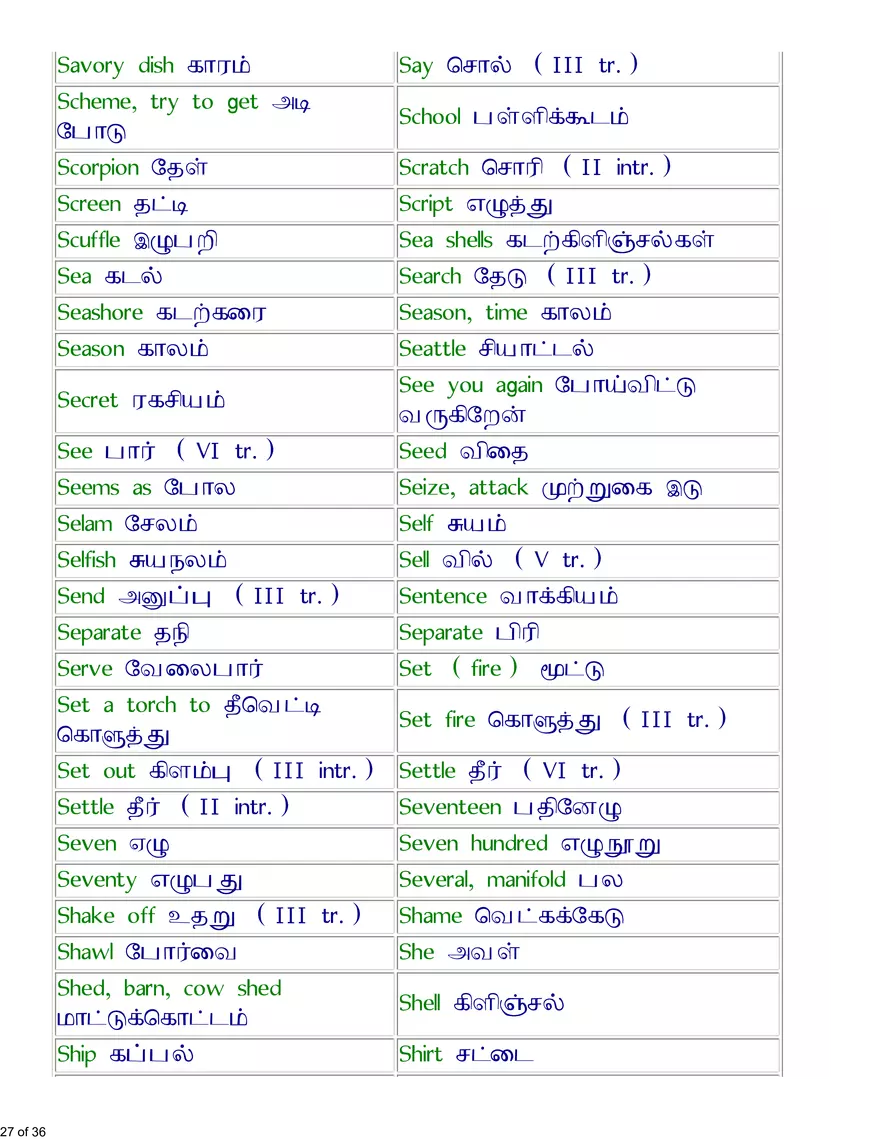 Savory dish காரம்
Say சொல் ( III tr. )
Scheme, try to get அடி
போடு
School பள்ளிக்கூடம்
Scorpion தேள்
Scratch சொரி ( II intr. )
Screen தட்டி
Script எழுத்து
Scuffle இழுபறி
Sea shells கடற்கிளிஞ்சல்கள்
Sea கடல்
Search தேடு ( III tr. )
Seashore கடற்கரை
Season, time காலம்
Season காலம்
Seattle சியாட்டல்
Secret ரகசியம்
See you again போய்விட்டு
வருகிறேன்
See பார் ( VI tr. )
Seed விதை
Seems as போல
Seize, attack முற்றுகை இடு
Selam சேலம்
Self சுயம்
Selfish சுயநலம்
Sell வில் ( V tr. )
Send அனுப்பு ( III tr. )
Sentence வாக்கியம்
Separate தநி
Separate பிரி
Serve வேலைபார்
Set ( fire ) மூட்டு
Set a torch to தீவெட்டி
கொளுத்து
Set fire கொளுத்து ( III tr. )
Set out கிளம்பு ( III intr. )
Settle தீர் ( VI tr. )
Settle தீர் ( II intr. )
Seventeen பதினேழு
Seven ஏழு
Seven hundred எழுநூறு
Seventy எழுபது
Several, manifold பல
Shake off உதறு ( III tr. )
Shame வெட்கக்கேடு
Shawl போர்வை
She அவள்
Shed, barn, cow shed
மாட்டுக்கொட்டம்
Shell கிளிஞ்சல்
Ship கப்பல்
Shirt சட்டை
27 of 36